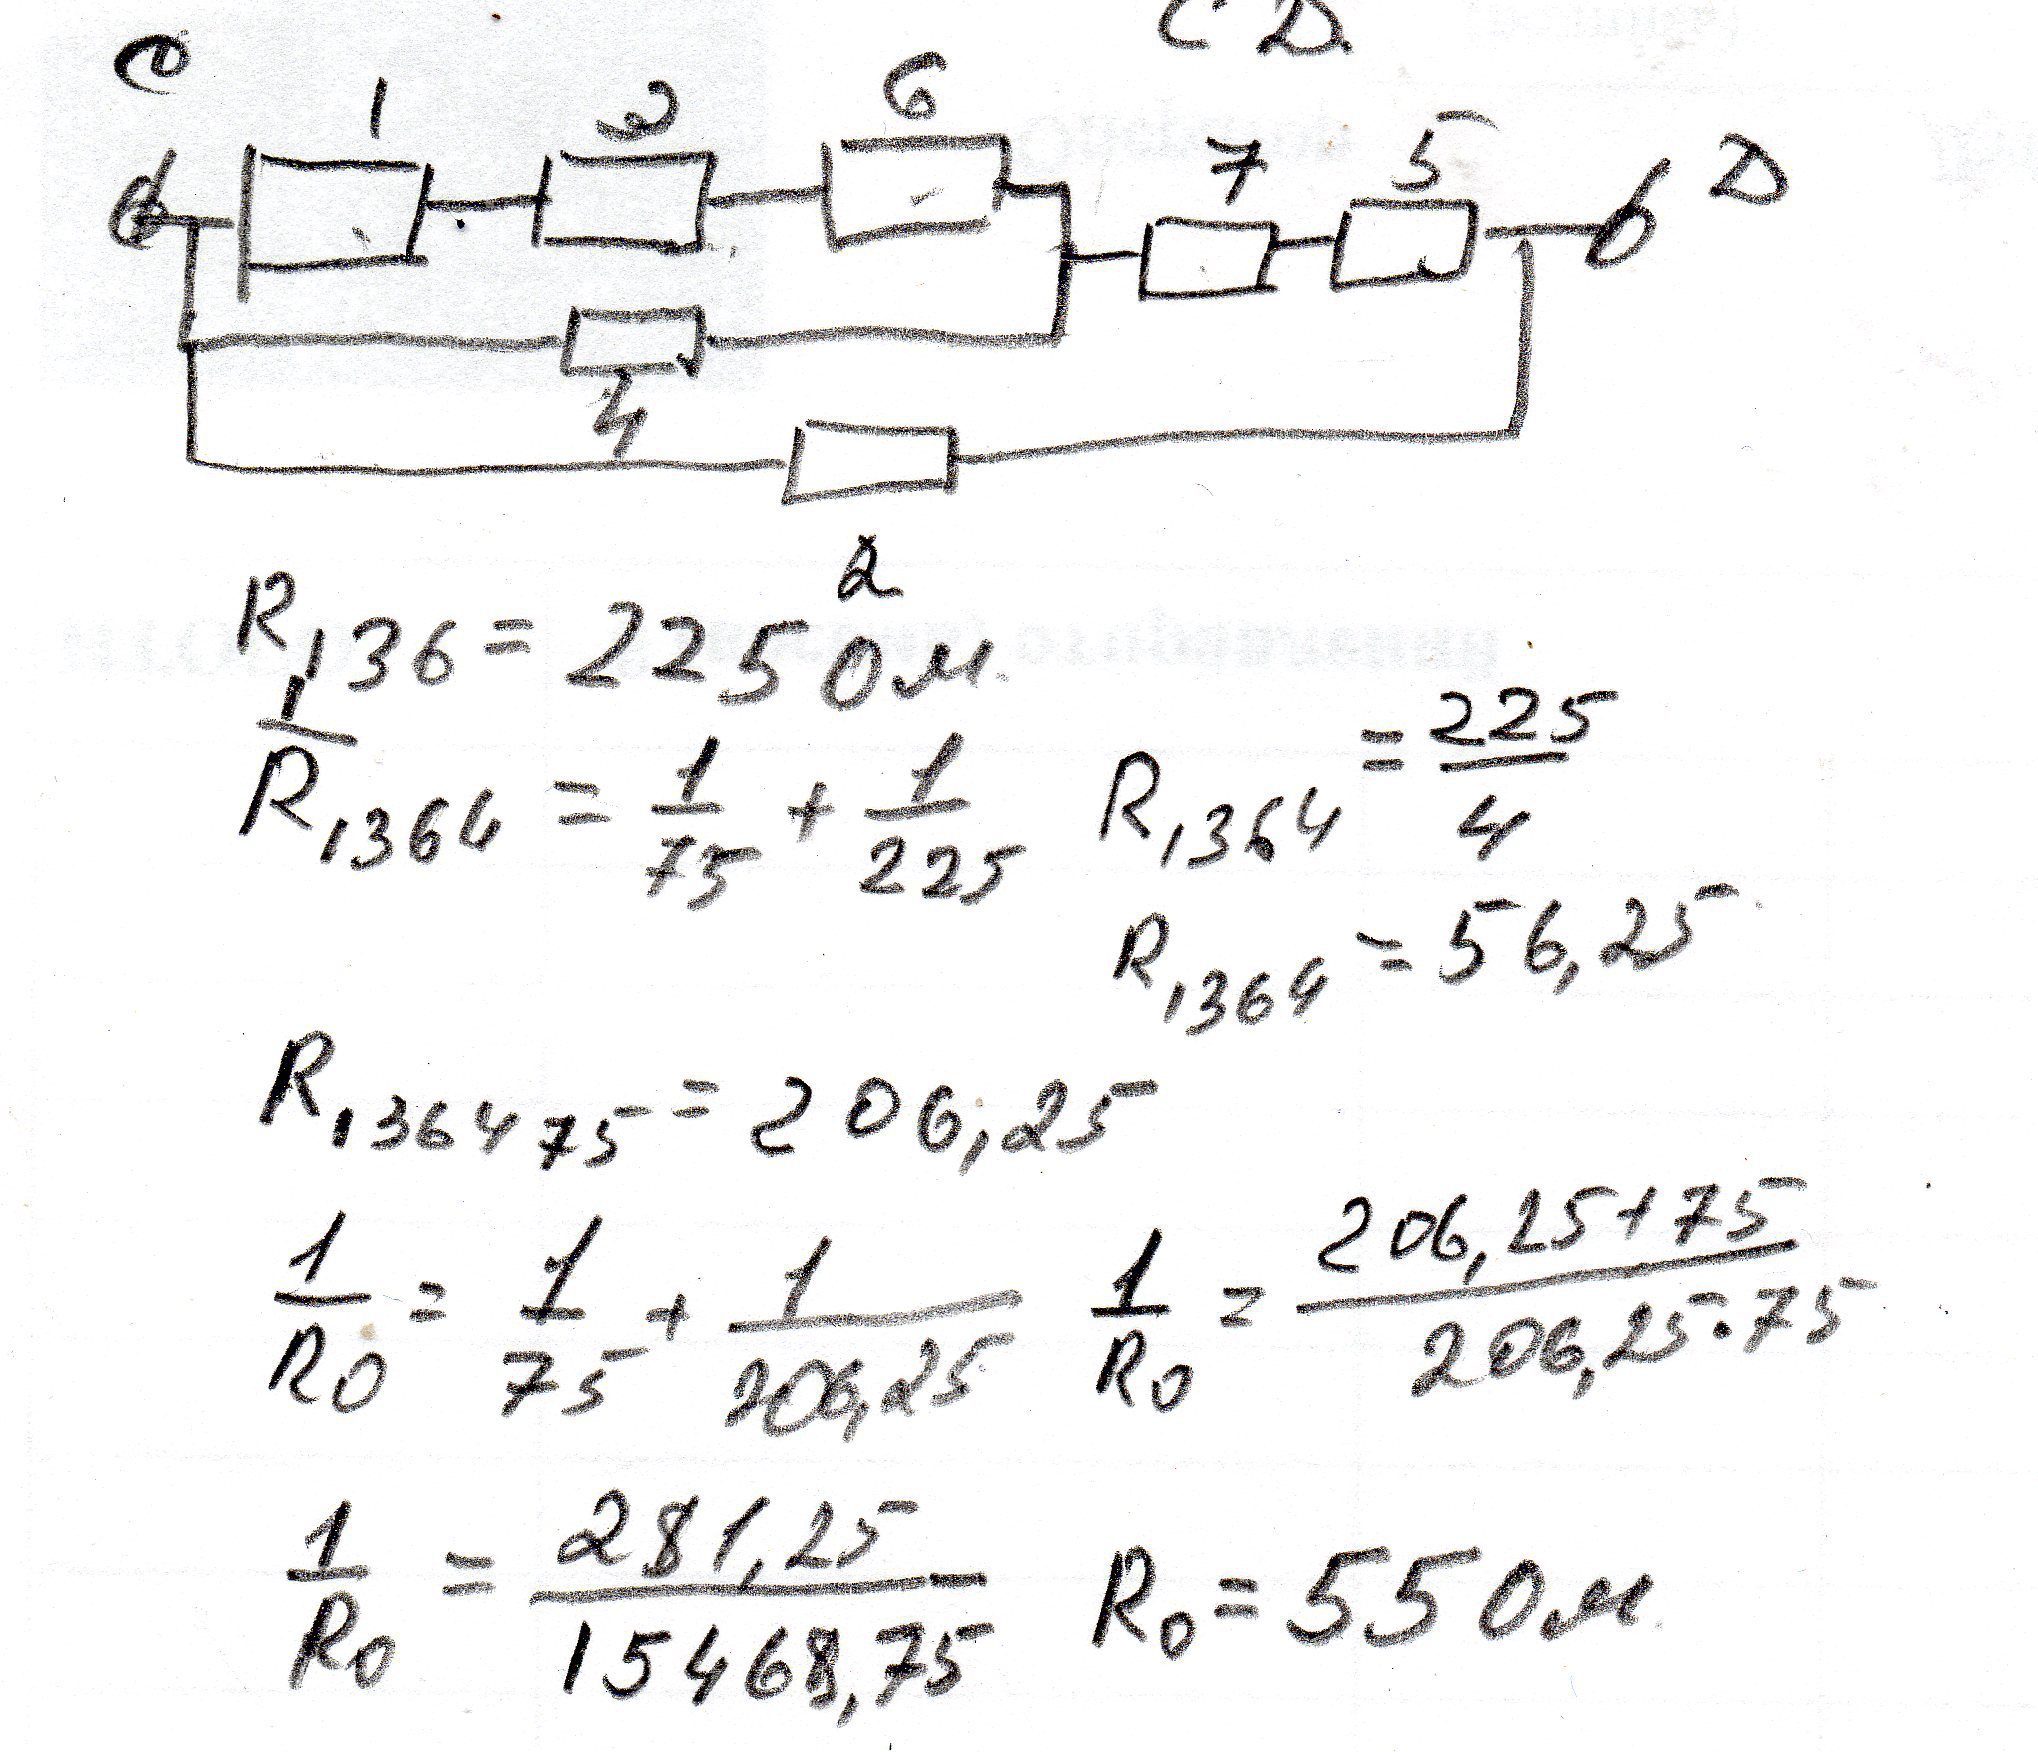 CD.
C
1 3 6 7 5 D
4
2
R136 = 225 Ом.
1/R1364 = 1/75 + 1/225 R1364 = 225/4
R1364 = 56,25
R136475 = 206,25
1/R0 = 1/75 + 1/206,25 1/R0 = 206,25+75/206,25·75
1/R0 = 281,25/15468,75 R0 = 55 Ом.